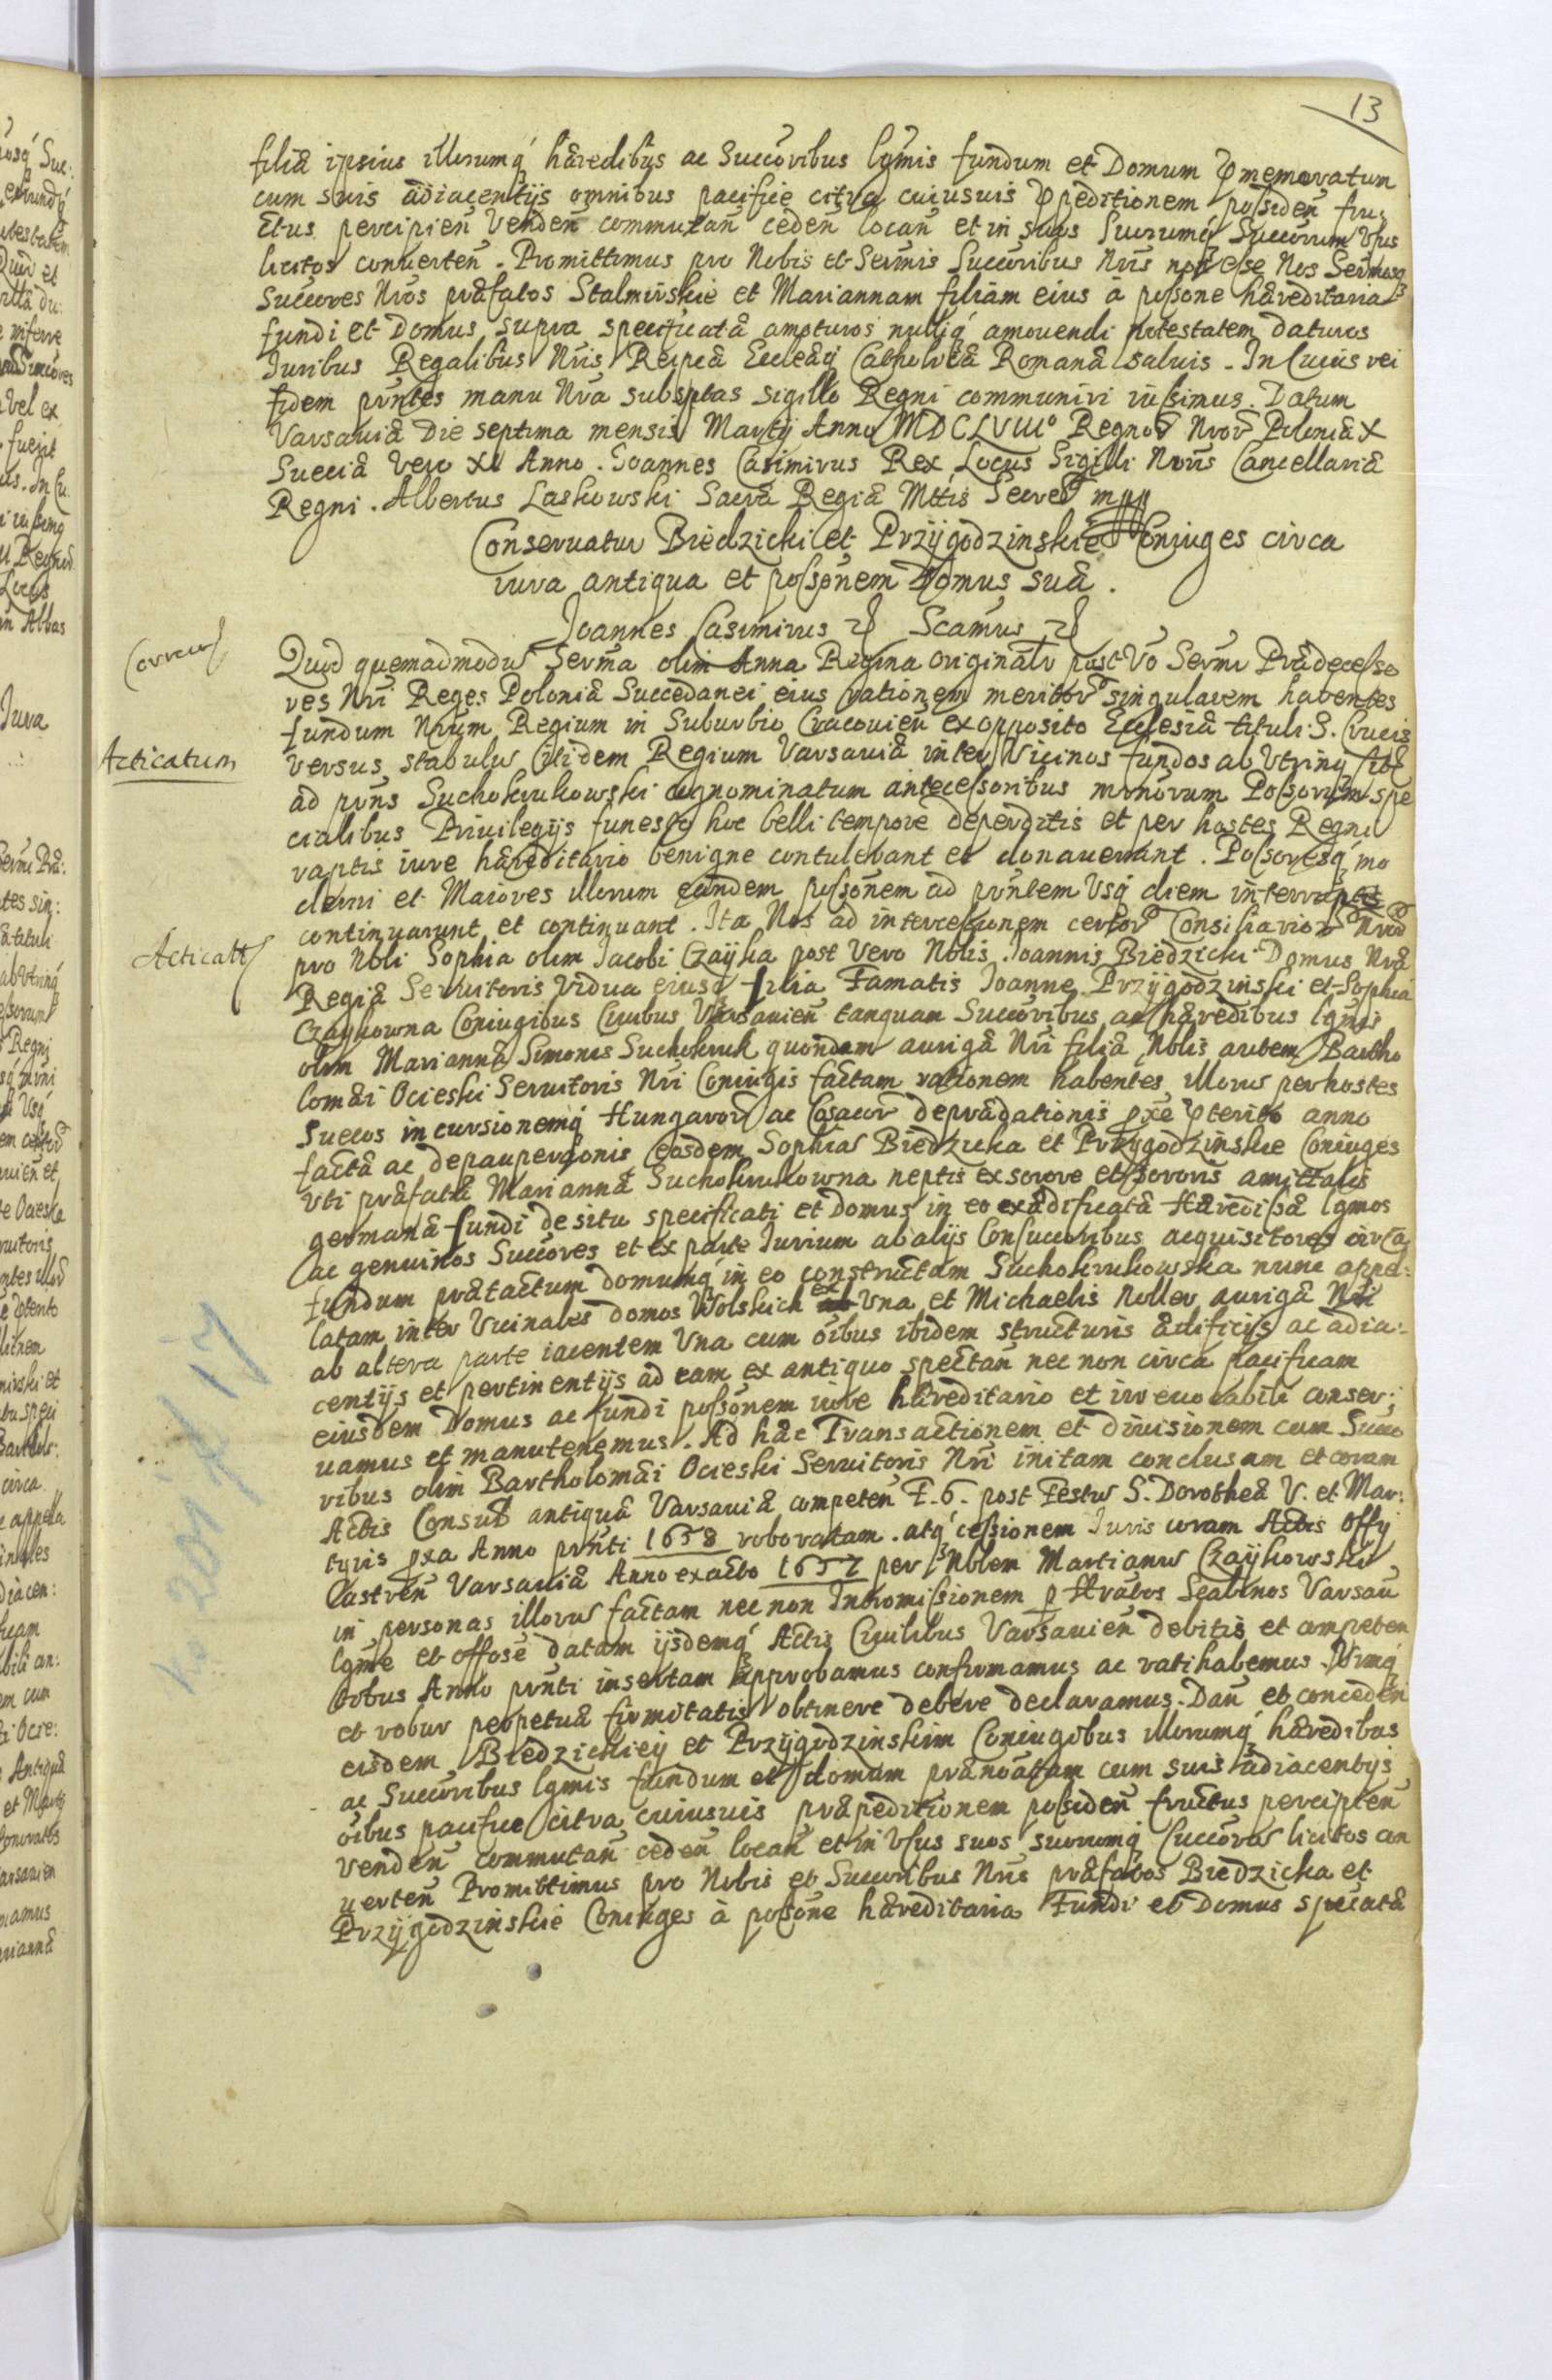 13
filiæ ipsius illorumq́ hæredibus ac Succõribus lgmis fundum et Domum præmemoratum
cum suis adiacentijs omnibus pacifice citra cuiusuis præpeditionem possideñ fru
ctus percipieñ vendeñ commutañ cedeñ locañ et in suos suorumq́ Succorum vsus
licitos conuerteñ. Promittimus pro Nobis et Sermis Succoribus Nris non esse Nos Sermosq́
Succores Nros præfatos Stalmirskie et Mariannam filiam eius à possone hæreditaria
fundi et Domus supra specificatæ amoturos nulliq́ amouendi potestatem daturos
Iuribus Regalibus Nris Reipcæ Eccleæq́ Catholicæ Romanæ saluis. In cuius rei
fidem prntes manu Nra subsptas sigillo Regni communiri iussimus. Datum
Varsauiæ Die septima mensis Martij Anno MDCLVIIIº Regnor Nror Poloniæ X
Sueciæ vero XI Anno. Ioannes Casimirus Rex Locus Sigilli Noris Cancellariæ
Regni. Albertus Laskowski Sacræ Regiæ Mttis Secret mpp
Conseruatur Biedzicki et Przÿgodzinskie Coniuges circa
iura antiqua et possonem Domus suæ.
Joannes Casimirus Scamus
Correcta
Quod quemadmodu Serma olim Anna Regina originalr post vo Sermi Prædecesso
res Nri Reges Poloniæ Succedanei eius rationem meritor singularem habentes
fundum Nrum Regium in Suburbio Cracouieñ ex opposito Ecclesiæ tituli S. Crucis
Acticatum
versus stabulu itidem Regium Varsauiæ inter vicinos fundos ab vtrinq́ situ
ad prns Suchokrukowski cognominatum antecessoribus mrnorum Possorum spe
cialibus Priuilegijs funesto hoc belli tempore deperditis et per hostes Regni
raptis iure hæreditario benigne contulerant et donauerunt. Possoresq́ mo
derni et Maiores illorum eandem possonem ad prntem vsq́ diem
continuarunt et continuant. Ita Nos ad intercessionem certor Consiliarior Nror
Acticatt
pro Nobli Sophia olim Jacobi Czaÿka post vero Noblis Joannis Biedzicki Domus Nræ
Regiæ Seruitoris vidua eiusq́ filia Famatis Joanne Przÿgodzinski et Sophia
Czaykowna Coniugibus Ciuibus Varsauieñ tanquam Succoribus ac hæredibus lgmis
olim Mariannæ Simonis Suchokruk quondam aurigæ Nri filiæ, Noblis autem Bartho
lomæi Ocieski Seruitoris Nri Coniugis factam rationem habentes illorum per hostes
Suecos incursionemq́ Hungaror ac Cosacor deprædationis præterito anno
factæ ac depauperaonis easdem Sophia Biedzicka et Przygodzinskie Coniuges
vti præfatæ Mariannæ Suchokrukowna neptis ex sorore et sororis amittalis
germanæ fundi de situ specificati et Domus in eo exædificatæ Hæredissæ lgmos
ac genuinos Succores et ex parte Iurium ab alijs Consuccoribus acquisitores circa
fundum prætactum domumq́ in eo constructam Suchokrukowska nunc appel:
latam inter vicinales domos Wolskich ex vna et Michaelis Noller aurigæ Nri
ab altera parte iacentem vna cum oibus ibidem structuris ædificijs ac adia:
centijs et pertinentijs ad eam ex antiquo spectañ nec non circa pacificam
eiusdem Domus ac fundi possonem iure hæreditario et irreuocabili conser:
uamus et manutenemus. Ad hæc Transactionem et diuisionem cum Succo
ribus olim Bartholomæi Ocieski Seruitoris Nri initam conclusam et coram
Actis Consul antiquæ Varsauiæ competeñ F. 6. post Festu S. Dorotheæ V. et Mar:
tyris pxa Anno prnti 1658 roboratam. atq́ cessionem Iuris coram Actis Offy
Castreñ Varsauiæ Anno exacto 1657 per Noblem Martianu Czaÿkowski
in personas illorum factam nec non Intromissionem p Hratos Scabinos Varsau
lgme et offose datam ijsdemq́ Actis Ciuilibus Varsauieñ debitis et competen
tibus Anno prnti insertam approbamus confirmamus ac ratihabemus. Vimq́
et robur perpetuæ firmitatis obtinere debere declaramus. Dañ et concedeñ
eisdem Biedzickieÿ et Przÿgodzinskim Coniugibus illorumq́ hæredibus
ac Succoribus lgmis fundum et domum prænoatam cum suis adiacentijs
oibus pacifice citra cuiusuis præpeditionem possideñ fructus percipieñ
vendeñ commutañ cedeñ locañ et in vsus suos suorumq́ Succorum licitos con
uerteñ Promittimus pro Nobis et Succoribus Nris præfatos Biedzicka et
Przÿgodzinskie Coniuges à possone hæreditaria Fundi et Domus specatæ